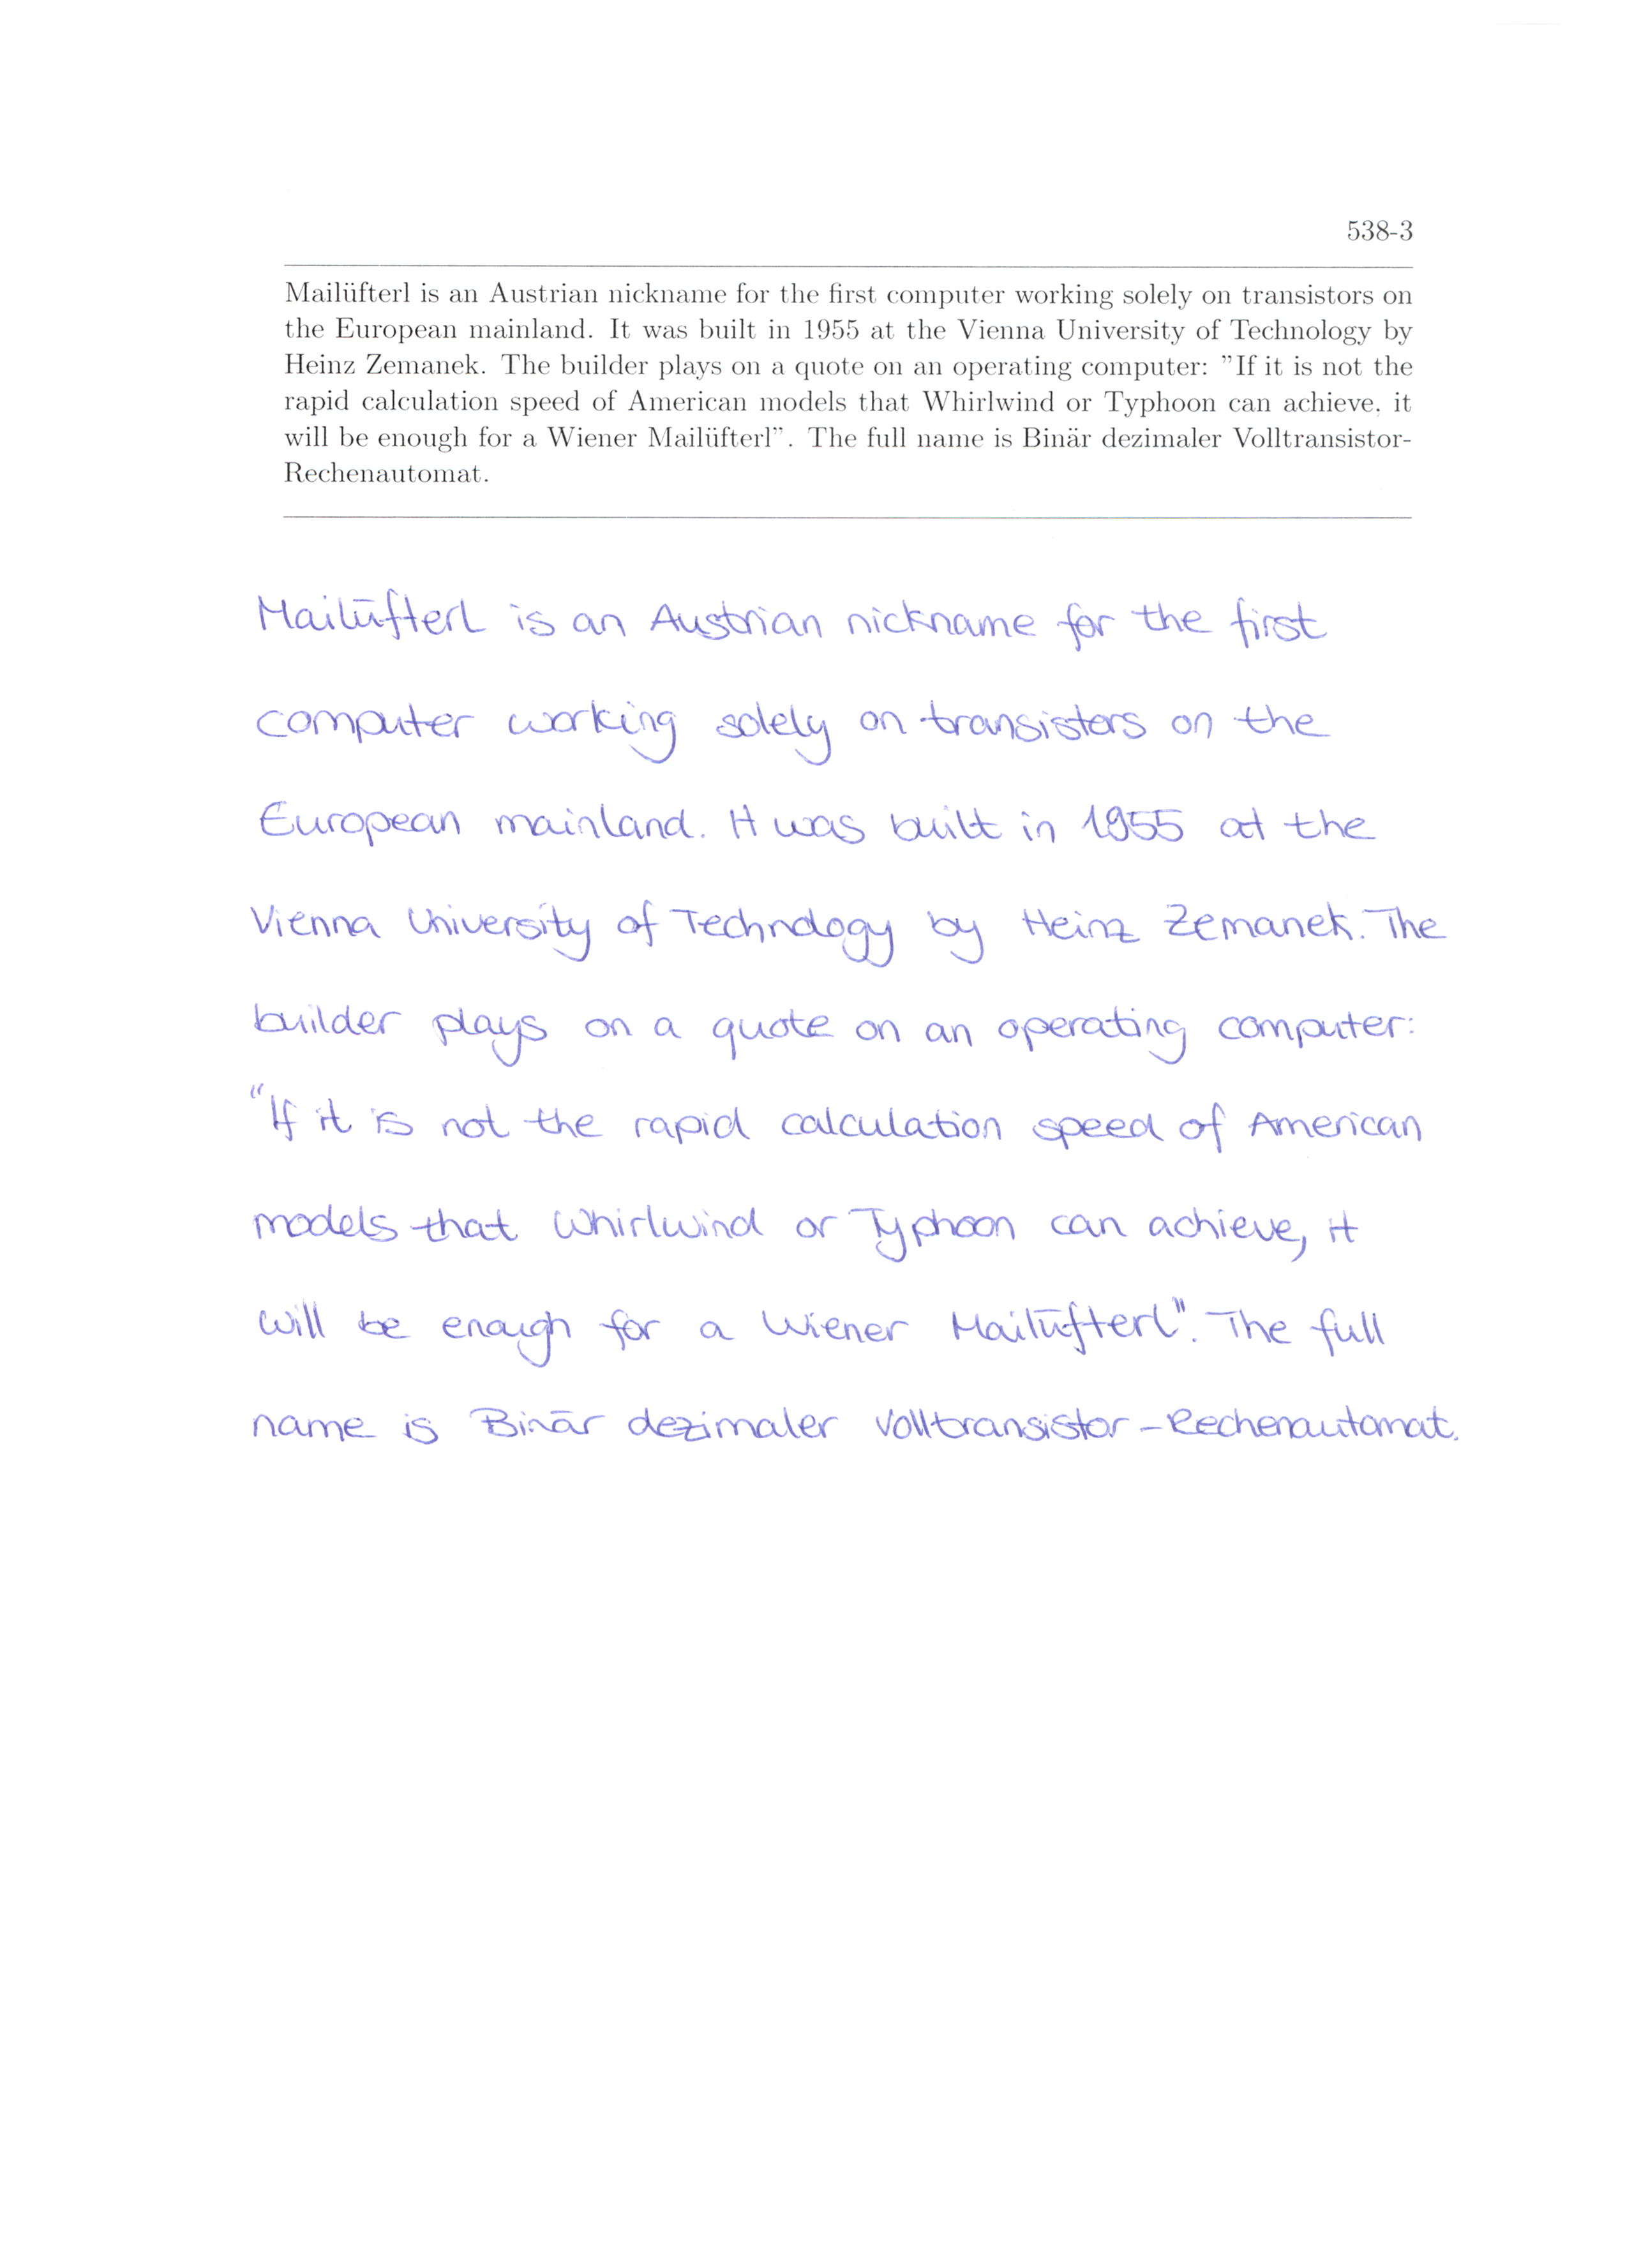 538-3
Mailüfterl is an Austrian nickname for the first computer working solely on transistors on
the European mainland. It was built in 1955 at the Vienna University of Technology by
Heinz Zemanek. The builder plays on a quote on an operating computer: ”If it is not the
rapid calculation speed of American models that Whirlwind or Typhoon can achieve, it
will be enough for a Wiener Mailüfterl”. The full name is Binär dezimaler Volltransistor-
Rechenautomat.
Mailüfterl is an Austrian nickname for the first
computer working solely on transistors on the
European mainland. It was built in 1955 at the
Vienna University of Technology by Heinz Zemanek. The
builder plays on a quote on an operating computer:
“If it is not the rapid calculation speed of American
models that Whirlwind or Typhoon can achieve, it
will be enough for a Wiener Mailüfterl". The full
name is Binär dezimaler Volltransistor-Rechenautomat.